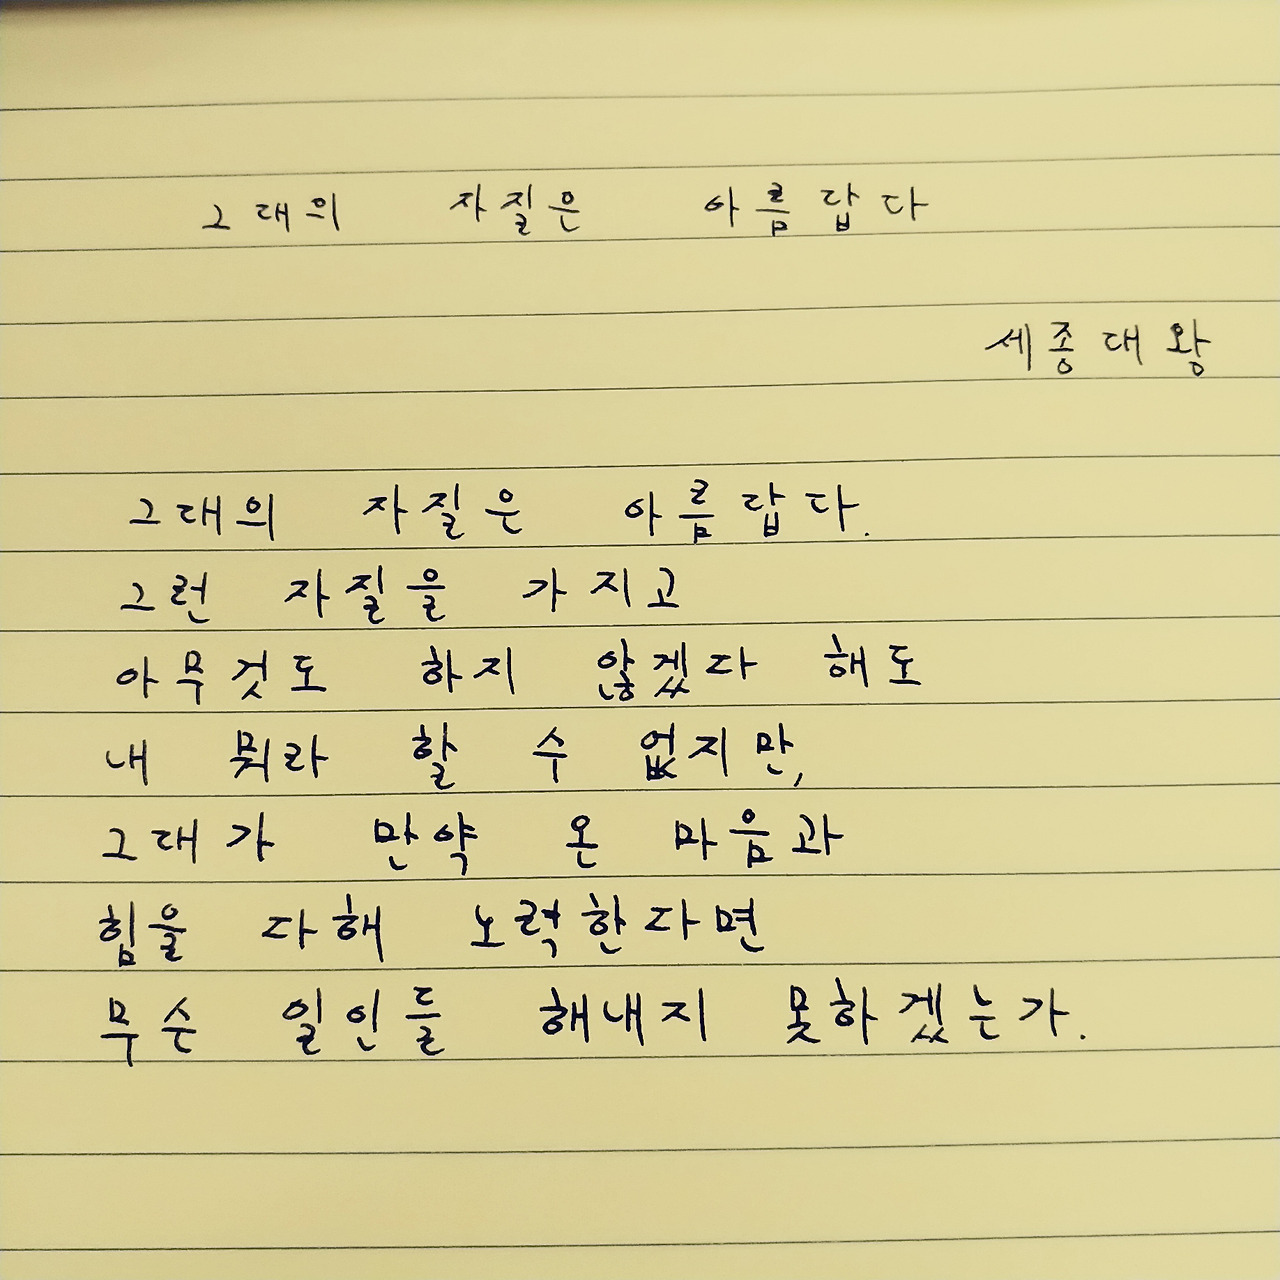 그대의 자질은 아름답다
세종대왕
그대의 자질은 아름답다.
그런 자질을 가지고
아무것도 하지 않겠다 해도
내 뭐라 할 수 없지만,
그대가 만약 온 마음과
힘을 다해 노력한다면
무슨 일인들 해내지 못하겠는가.